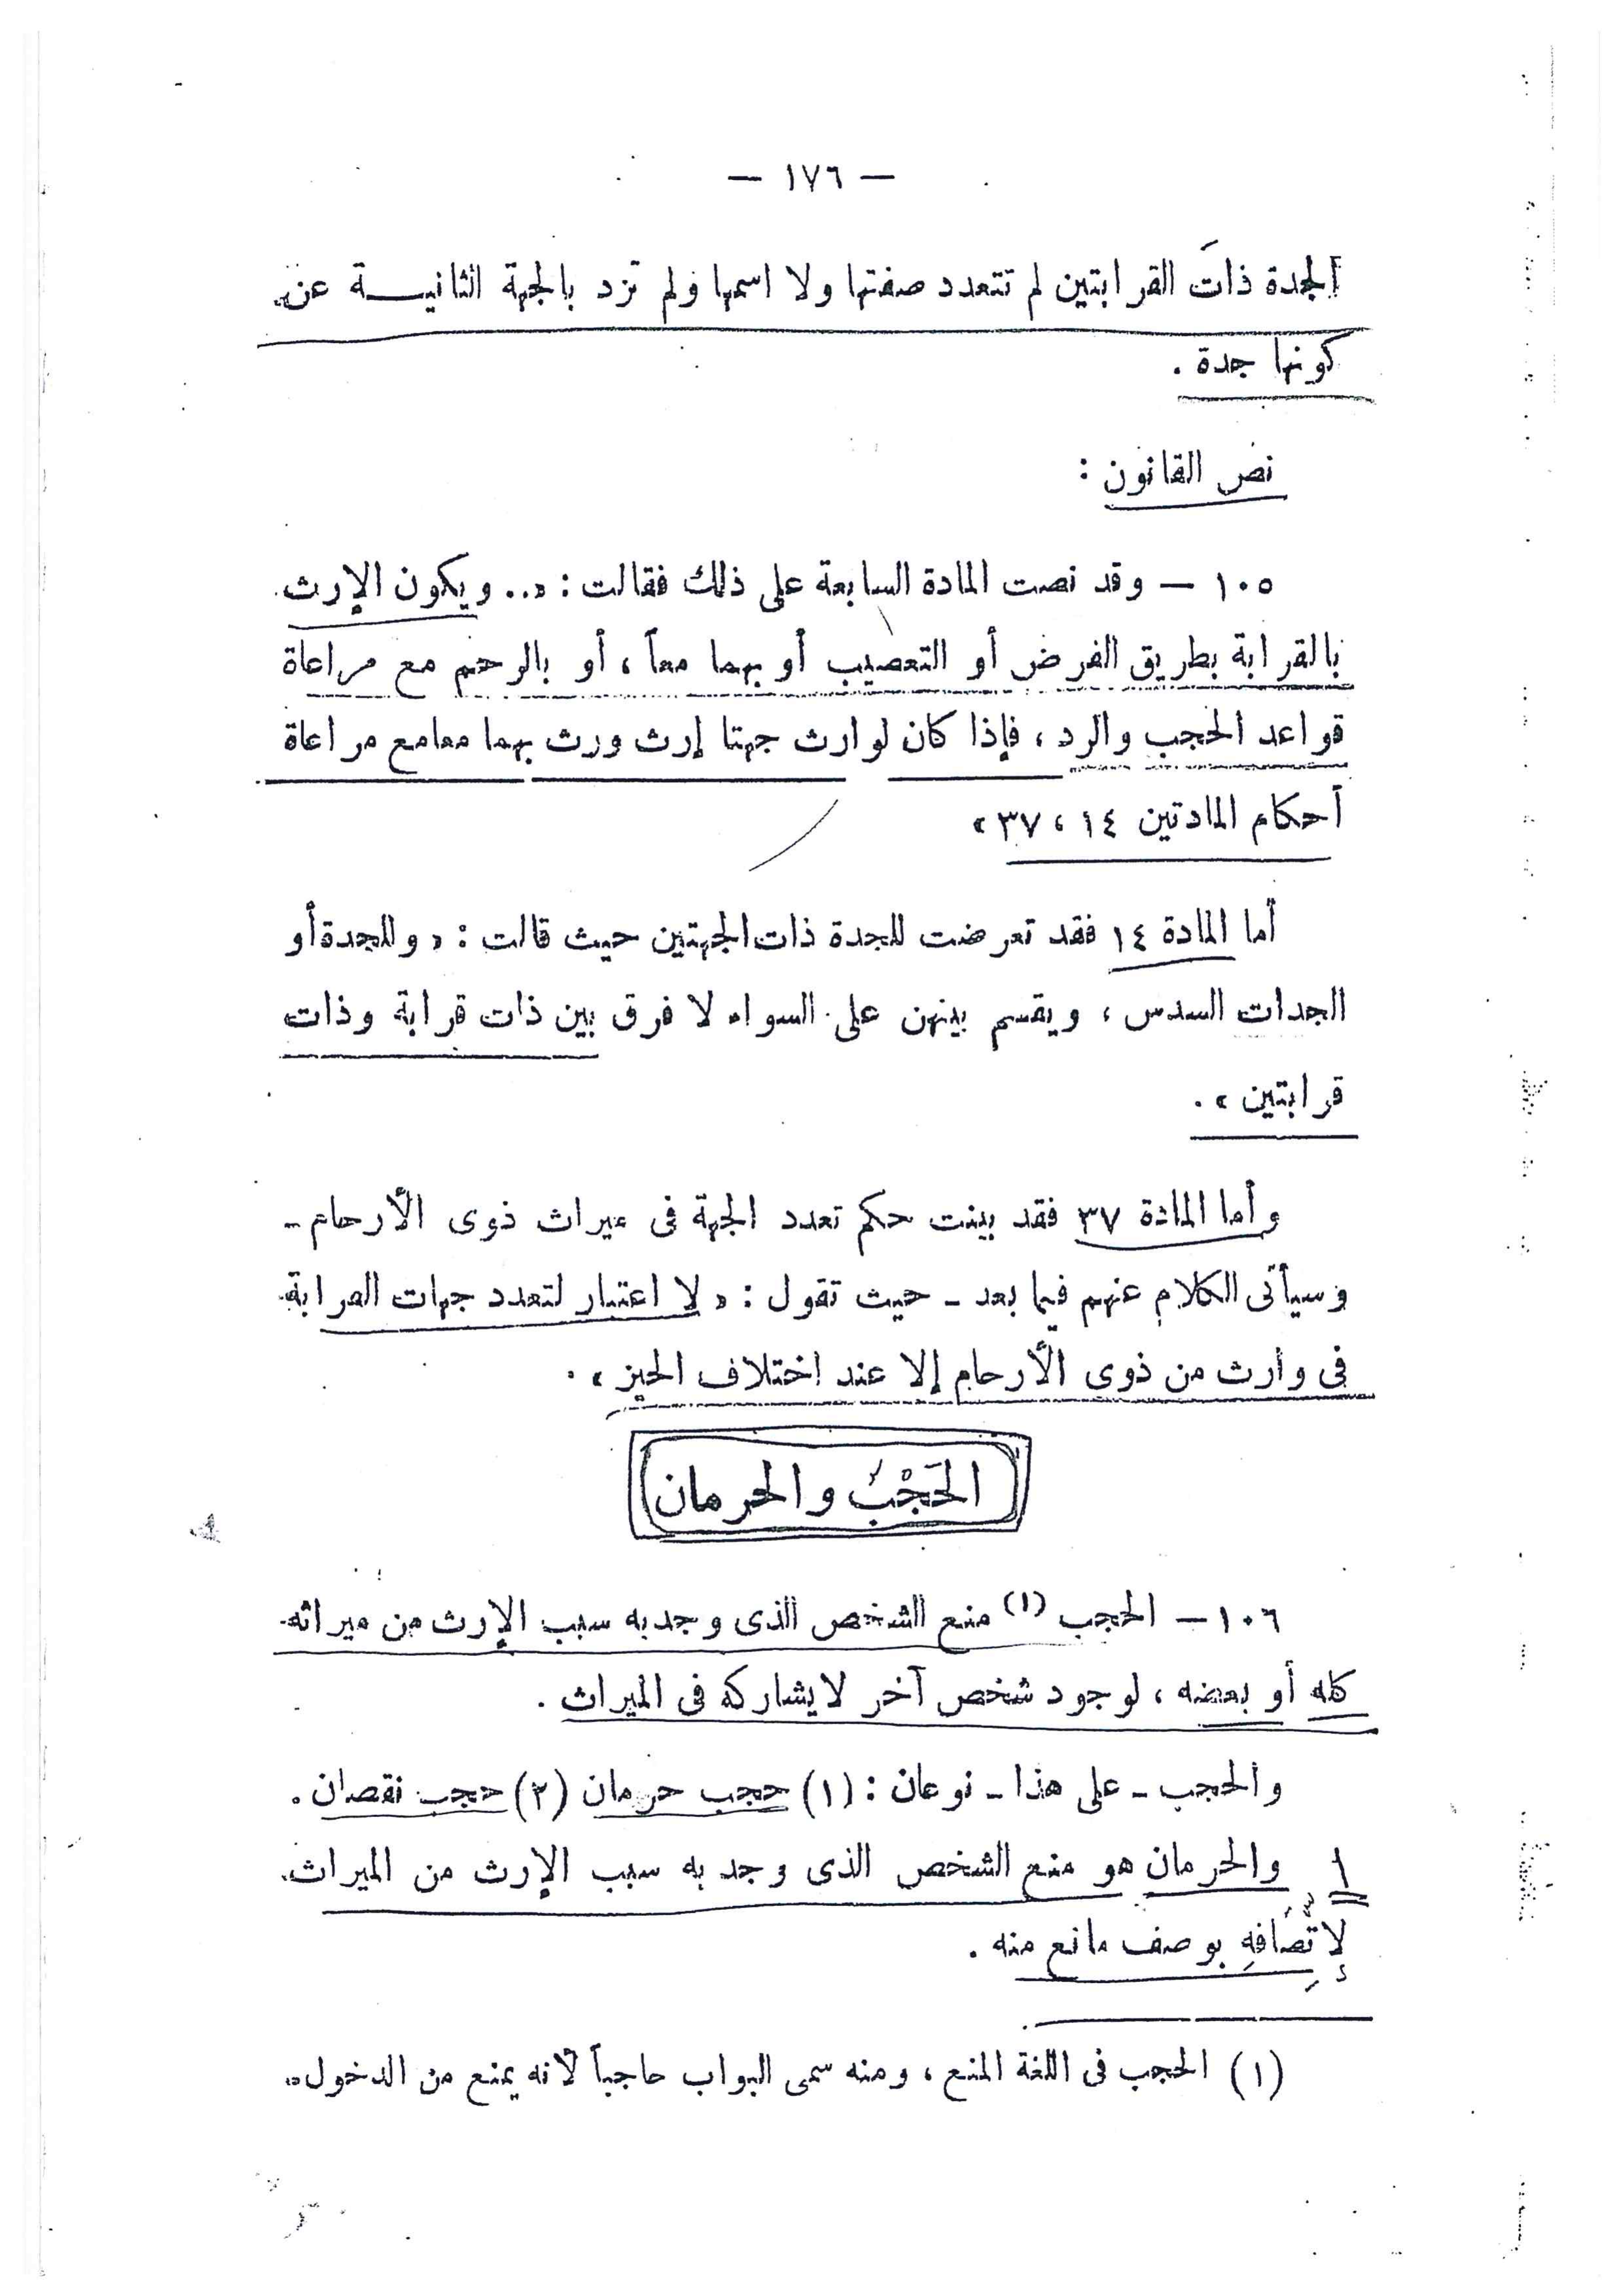 — ١٧٦ —
الجدة ذاتَ القرابتين لم تتعدد صفتها ولا اسمها ولم تزد بالجهة الثانيـــة عن
كونها جدة .
نص القانون :
١٠٥ — وقد نصت المادة السابعة على ذلك فقالت : « .. ويكون الإرث
بالقرابة بطريق الفرض أو التعصيب أو بهما معاً ، أو بالرحم مع مراعاة
قواعد الحجب والرد ، فإذا كان لوارث جهتا إرث ورث بهما معا مع مراعاة
أحكام المادتين ١٤ ، ٣٧ »
أما المادة ١٤ فقد تعرضت للجدة ذات الجهتين حيث قالت : « وللجدة أو
الجدات السدس ، ويقسم بينهن على السواء لا فرق بين ذات قرابة وذات
قرابتين » .
وأما المادة ٣٧ فقد بينت حكم تعدد الجهة فى ميراث ذوى الأرحام -
وسيأتى الكلام عنهم فيما بعد - حيث تقول : « لا اعتبار لتعدد جهات القرابة
فى وارث من ذوى الأرحام إلا عند اختلاف الحيز » .
الحَجْبُ والحرمان
١٠٦ — الحجب (١) منع الشخص الذى وجد به سبب الإرث من ميراثه
كله أو بعضه ، لوجود شخص آخر لا يشاركه فى الميراث .
والحجب - على هذا - نوعان : (١) حجب حرمان (٢) حجب نقصان .
١ والحرمان هو منع الشخص الذى وجد به سبب الإرث من الميراث
لإتِّصَافهِ بوصف مانع منه .
(١) الحجب فى اللغة المنع ، ومنه سمى البواب حاجباً لأنه يمنع من الدخول .